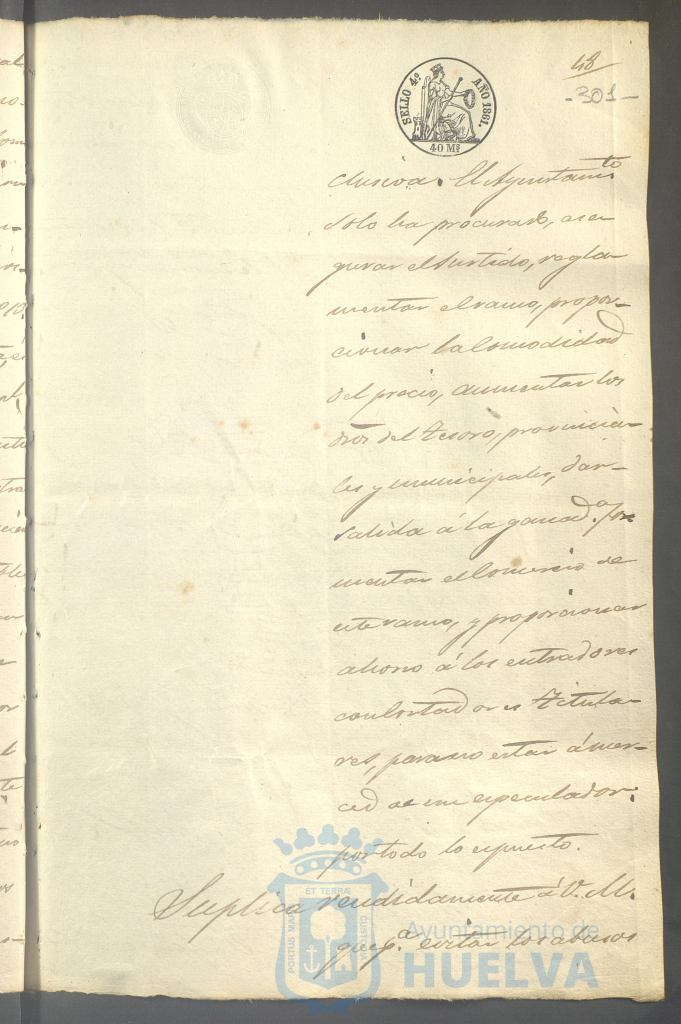 48
-301-
SELLO 4º AÑO 1861.
40 Mˢ
clusiva. El Ayuntamto
solo ha procurado, ase
gurar el surtido, regla-
mentar el ramo, propor-
cionar la Comodidad
del precio, aumentar los
dros del Tesoro, provincia-
les y municipales, dar-
salida á la ganada. fo
mentar el Comercio de
este ramo, y proporcionar
ahorro á los entradores
con Cortadores titula-
res, para no estar á mer-
ced de un especulador.
por todo lo espuesto.
Suplica rendidamente á V. M.
que pa. evitar los abusos
PORTUS MARIS ET TERRÆ CUSTODIA
Ayuntamiento de
HUELVA